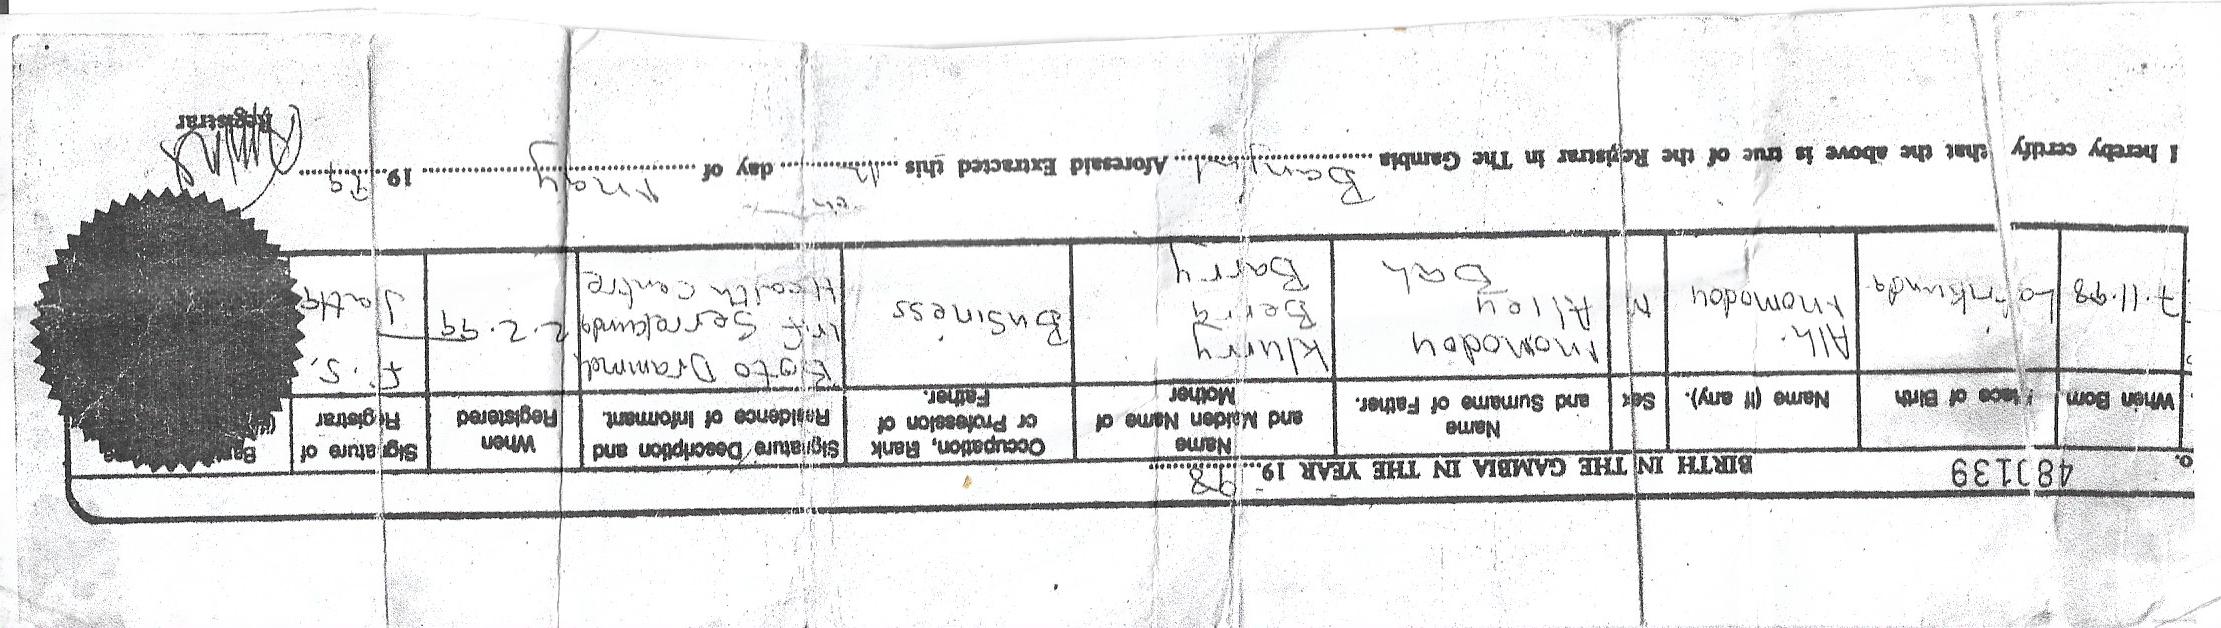 BIRTH IN THE GAMBIA IN THE YEAR 19 98
When Born.
Place of Birth
Name (If any).
Sex
Name
and Surname of Father.
Name
and Maiden Name of
Mother
Occupation, Rank
or Profession of
Father.
Signature, Description and
Residence of Informant.
When
Registered
Signature of
Registrar
7.11.98
Alh.
Momodou
M
Momodou
Alley
Bah
Barry
Business
Drammeh
Serrekunda
Health centre
2.2.99
F. S.
Jatta
I hereby certify that the above is true of the Registrar in The Gambia Banjul Aforesaid Extracted this day of May 19 99
Registrar